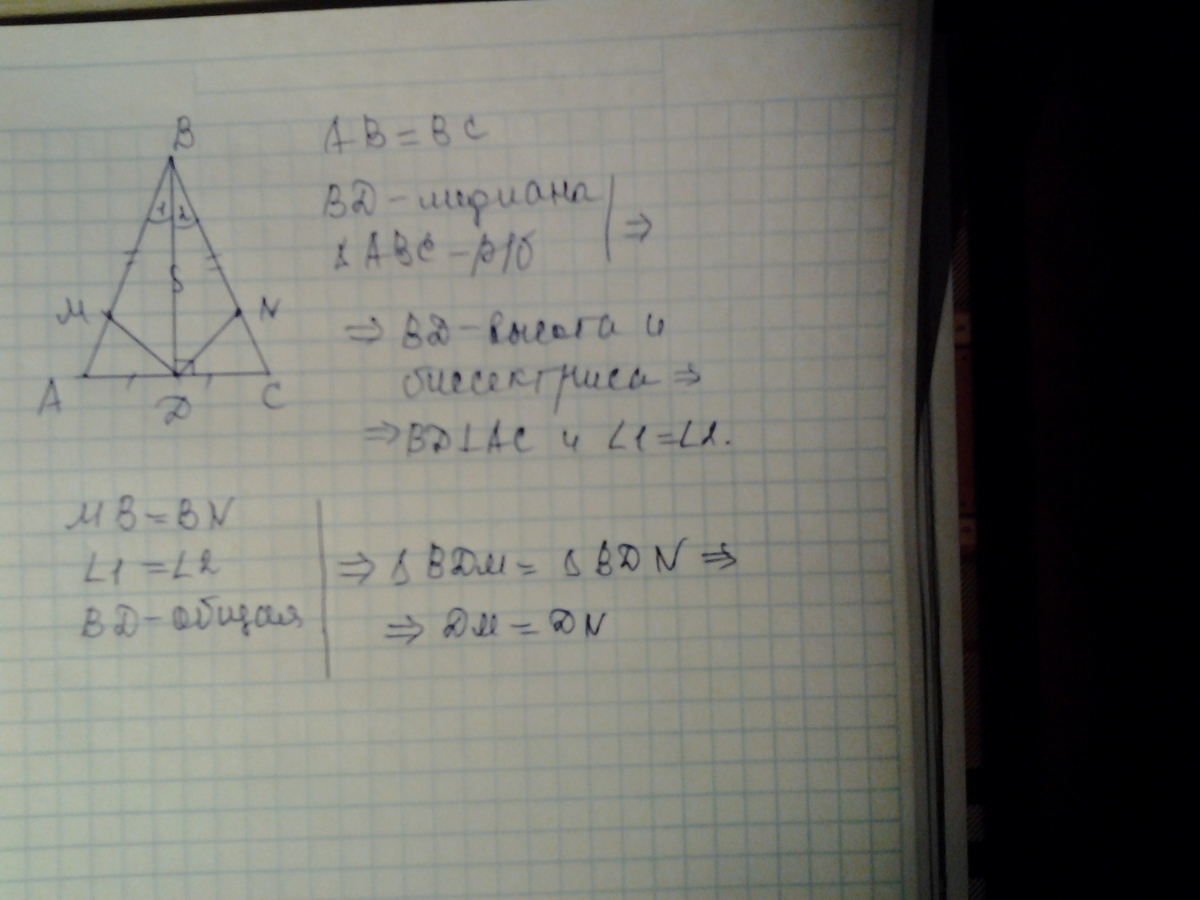 B
1 2
M
N
A
D
C
AB = BC
BD - медиана
Δ ABC - р/б
⇒
⇒ BD - высота и
биссектриса ⇒
⇒ BD ⊥ AC и ∠1 = ∠2.
MB = BN
∠1 = ∠2
BD - общая
⇒ Δ BDM = Δ BDN ⇒
⇒ DM = DN